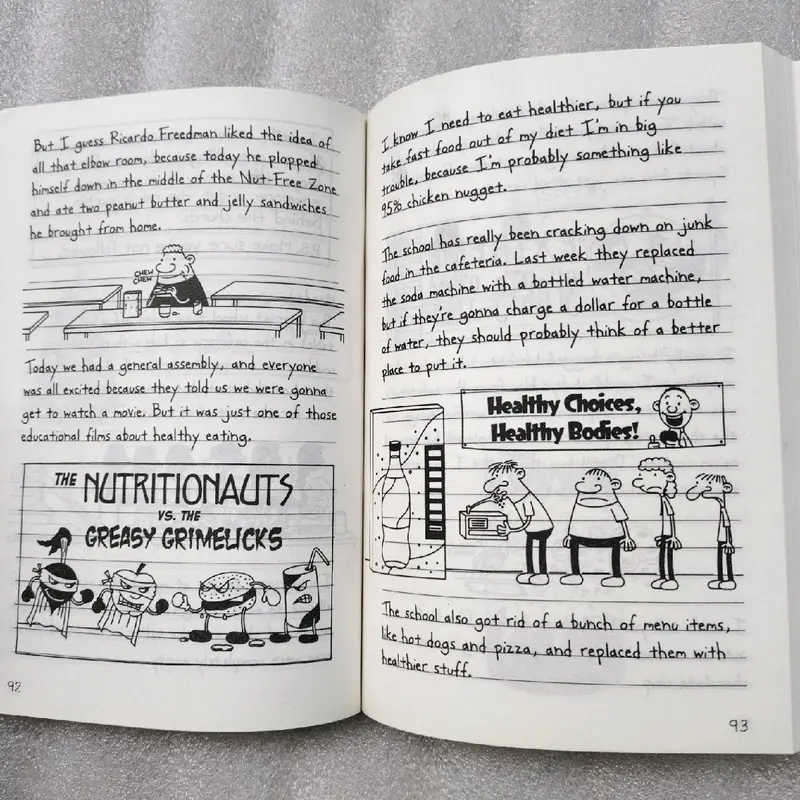 But I guess Ricardo Freedman liked the idea of
all that elbow room, because today he plopped
himself down in the middle of the Nut-Free Zone
and ate two peanut butter and jelly sandwiches
he brought from home.
CHEW
CHEW
Today we had a general assembly, and everyone
was all excited because they told us we were gonna
get to watch a movie. But it was just one of those
educational films about healthy eating.
THE NUTRITIONAUTS
VS. THE
GREASY GRIMELICKS
92
I know I need to eat healthier, but if you
take fast food out of my diet I'm in big
trouble, because I'm probably something like
95% chicken nugget.
The school has really been cracking down on junk
food in the cafeteria. Last week they replaced
the soda machine with a bottled water machine,
but if they're gonna charge a dollar for a bottle
of water, they should probably think of a better
place to put it.
Healthy Choices,
Healthy Bodies!
The school also got rid of a bunch of menu items,
like hot dogs and pizza, and replaced them with
healthier stuff.
93